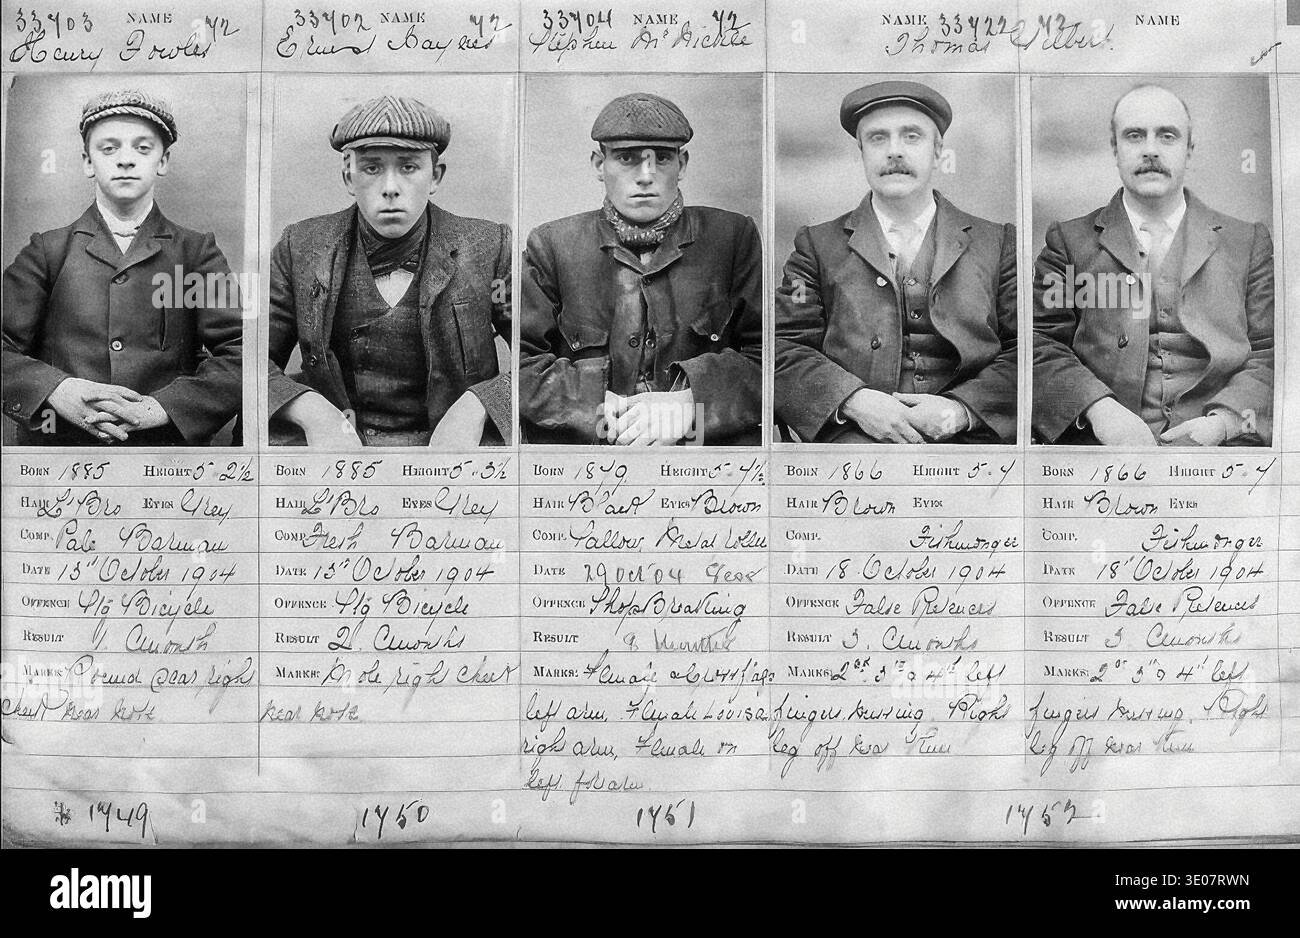 33703 NAME 72 33702 NAME 72 33704 NAME 72 NAME 33722 72 NAME
Henry Fowler Ernest Stephen McNickle Thomas Gilbert
BORN 1885 HEIGHT 5-2½ BORN 1885 HEIGHT 5-3½ BORN 1879 HEIGHT 5-4½ BORN 1866 HEIGHT 5-7 BORN 1866 HEIGHT 5-7
HAIR Lt Bro EYES Grey HAIR Lt Bro EYES Grey HAIR Black EYES Brown HAIR Brown EYES HAIR Brown EYES
COMP. Pale Barman COMP. Fresh Barman COMP. Sallow, Metal Roller COMP. Fishmonger COMP. Fishmonger
DATE 13th October 1904 DATE 13th October 1904 DATE 29 Oct 04 DATE 18 October 1904 DATE 18th October 1904
OFFENCE Stg Bicycle OFFENCE Stg Bicycle OFFENCE Shop Breaking OFFENCE False Pretences OFFENCE False Pretences
RESULT 1. Month RESULT 2. Months RESULT Months RESULT 3. Months RESULT 3. Months
MARKS: Round scar right MARKS: Mole right cheek MARKS: Female MARKS: 2nd 3rd & 4th left MARKS: 2nd 3rd & 4th left
cheek near nose near nose left arm, Female Louisa fingers missing. Right fingers missing. Right
right arm, Female on leg off near knee leg off near knee
left forearm
1749 1750 1751 1752
alamy
Image ID: 3E07RWN
www.alamy.com